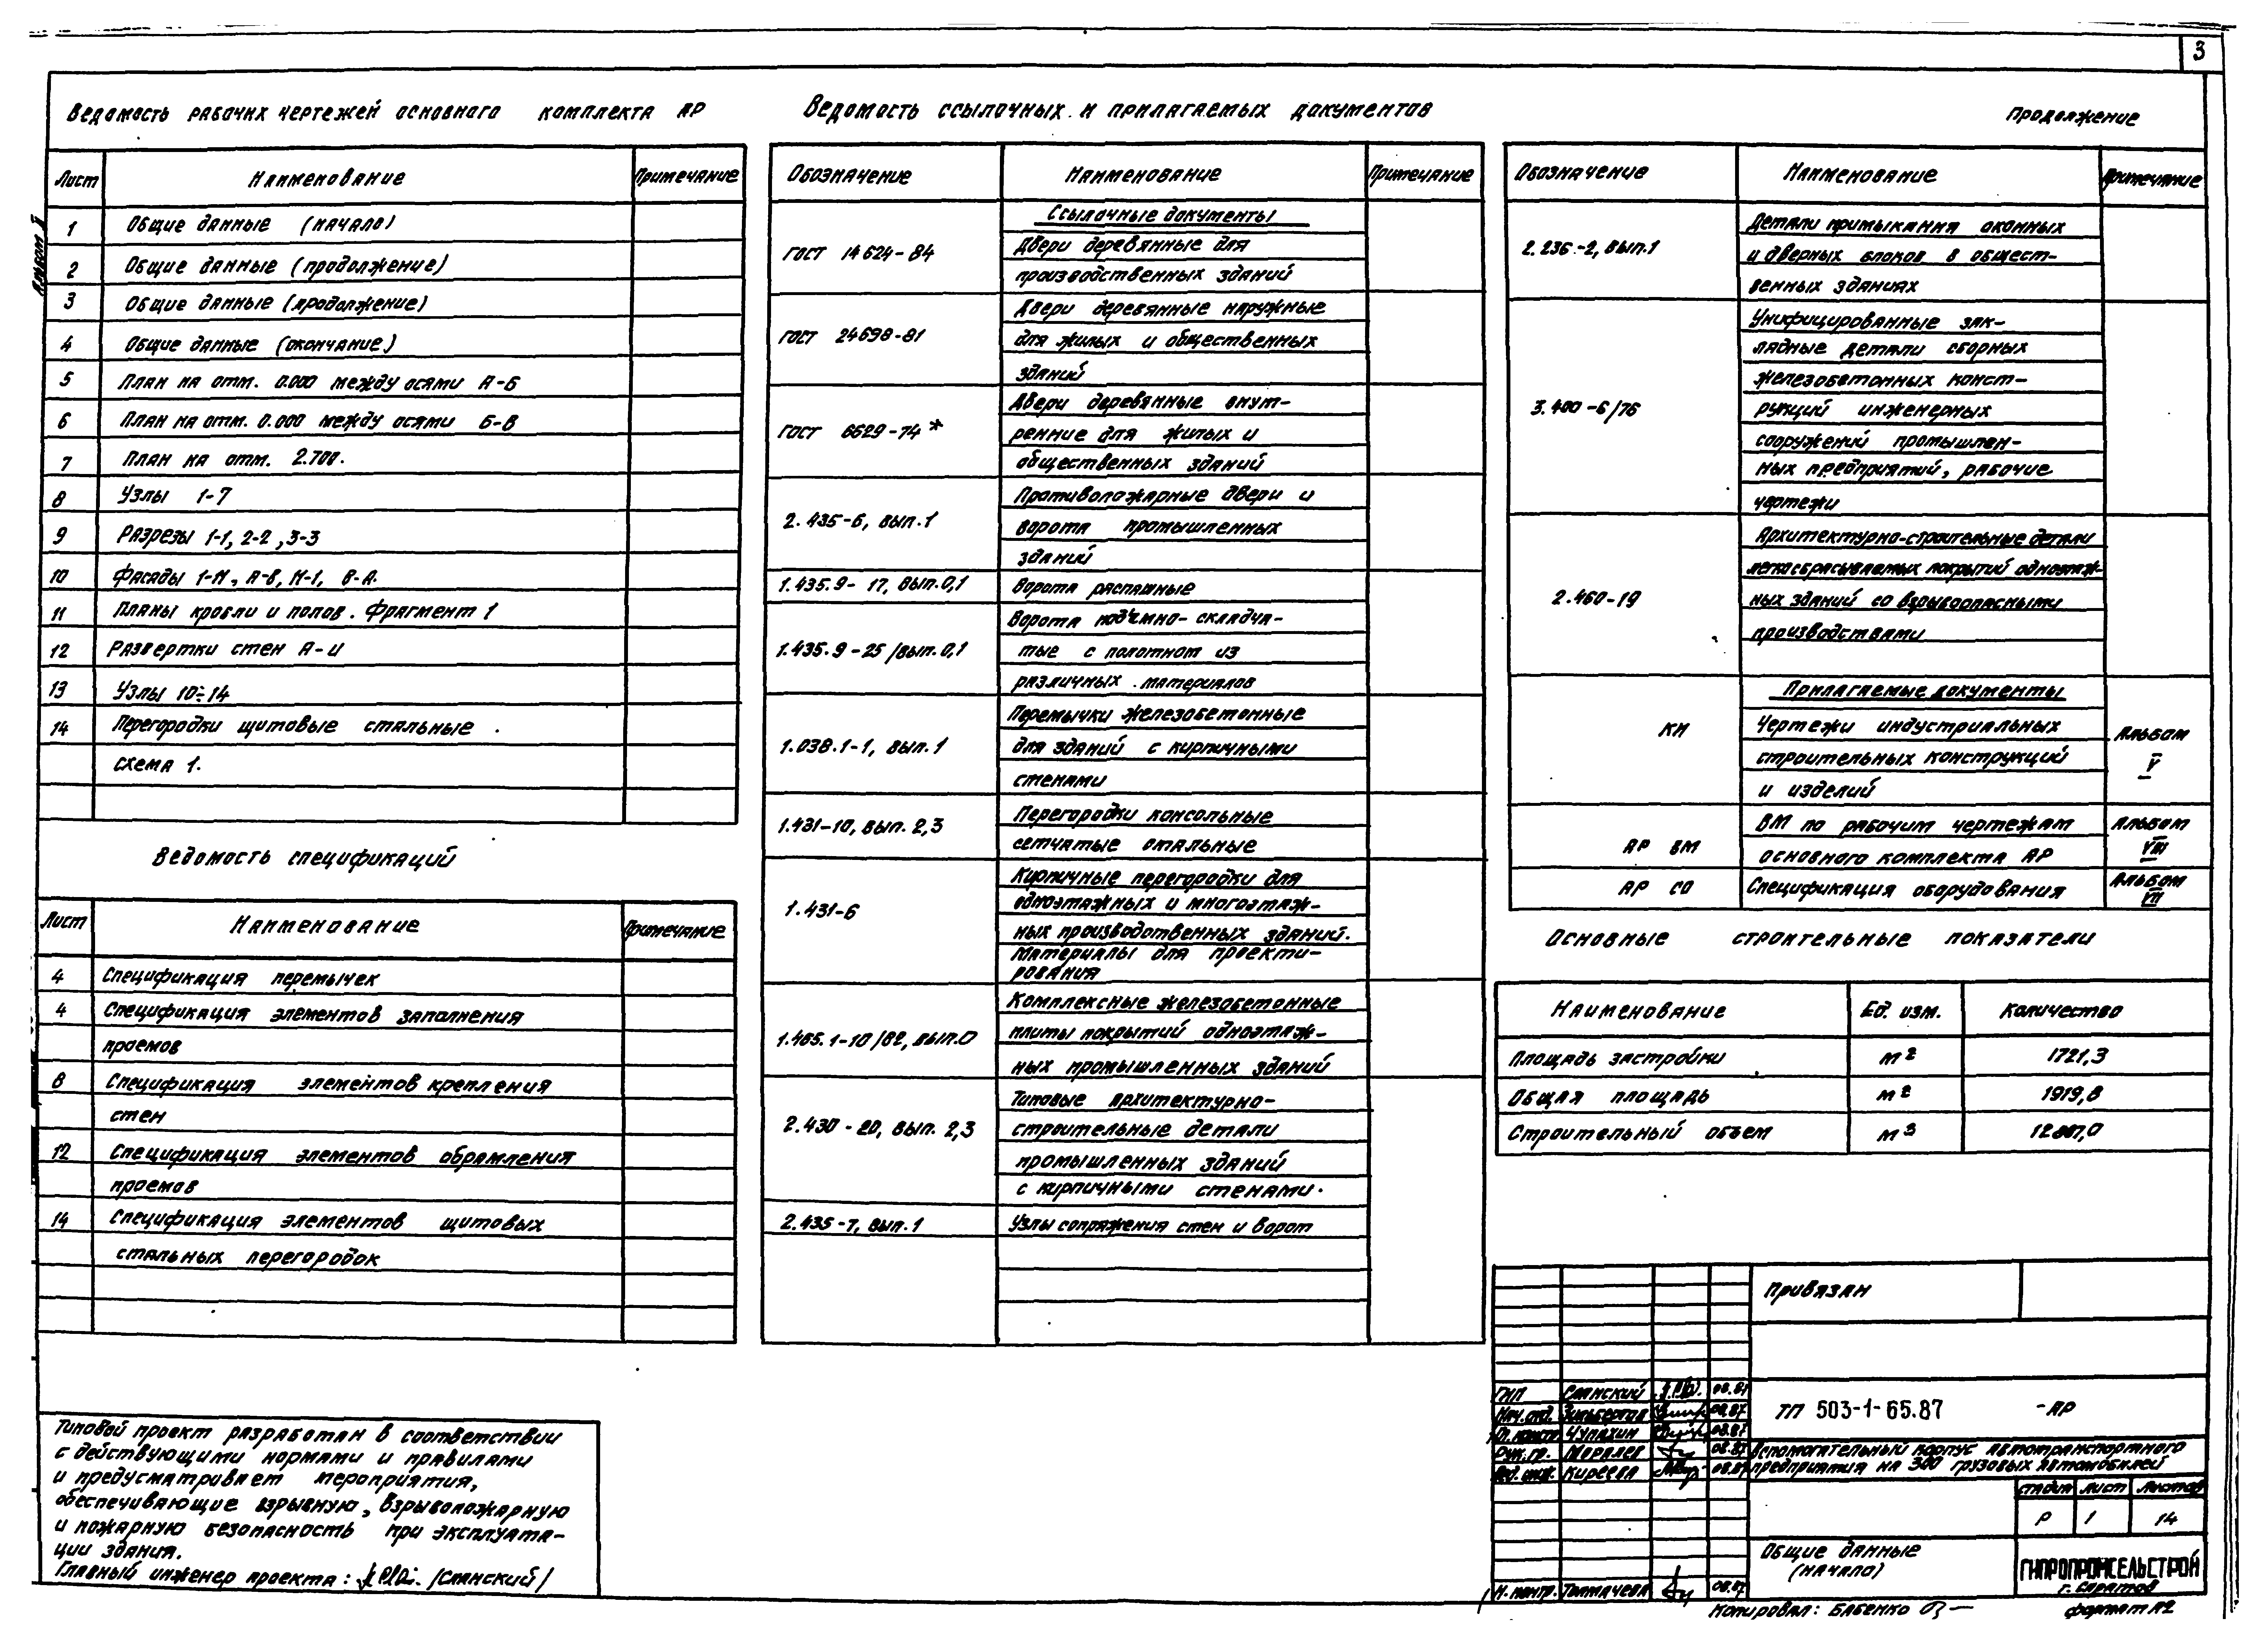 3
Альбом I
Ведомость рабочих чертежей основного комплекта АР
Лист Наименование Примечание
1 Общие данные (начало)
2 Общие данные (продолжение)
3 Общие данные (продолжение)
4 Общие данные (окончание)
5 План на отм. 0.000 между осями А-Б
6 План на отм. 0.000 между осями Б-В
7 План на отм. 2.700.
8 Узлы 1-7
9 Разрезы 1-1, 2-2, 3-3
10 Фасады 1-11, А-В, 11-1, В-А.
11 Планы кровли и полов. Фрагмент 1
12 Развертки стен А-И
13 Узлы 10÷14
14 Перегородки щитовые стальные.
схема 1.
Ведомость спецификаций
Лист Наименование Примечание
4 Спецификация перемычек
4 Спецификация элементов заполнения
проемов
8 Спецификация элементов крепления
стен
12 Спецификация элементов обрамления
проемов
14 Спецификация элементов щитовых
стальных перегородок
Типовой проект разработан в соответствии
с действующими нормами и правилами
и предусматривает мероприятия,
обеспечивающие взрывную, взрывопожарную
и пожарную безопасность при эксплуата-
ции здания.
Главный инженер проекта: /Слянский/
Ведомость ссылочных и прилагаемых документов
Обозначение Наименование Примечание
Ссылочные документы
ГОСТ 14624-84 Двери деревянные для
производственных зданий
ГОСТ 24698-81 Двери деревянные наружные
для жилых и общественных
зданий
ГОСТ 6629-74* Двери деревянные внут-
ренние для жилых и
общественных зданий
2.435-6, вып.1 Противопожарные двери и
ворота промышленных
зданий
1.435.9-17, вып.0,1 Ворота распашные
1.435.9-25/вып.0,1 Ворота подъемно-складча-
тые с полотном из
различных материалов
1.038.1-1, вып.1 Перемычки железобетонные
для зданий с кирпичными
стенами
1.431-10, вып. 2,3 Перегородки консольные
сетчатые стальные
1.431-6 Кирпичные перегородки для
одноэтажных и многоэтаж-
ных производственных зданий.
Материалы для проекти-
рования
1.465.1-10/82, вып.0 Комплексные железобетонные
плиты покрытий одноэтаж-
ных промышленных зданий
2.430-20, вып. 2,3 Типовые архитектурно-
строительные детали
промышленных зданий
с кирпичными стенами.
2.435-7, вып.1 Узлы сопряжения стен и ворот
Продолжение
Обозначение Наименование Примечание
2.236-2, вып.1 Детали примыкания оконных
и дверных блоков в общест-
венных зданиях
3.400-6/76 Унифицированные зак-
ладные детали сборных
железобетонных конст-
рукций инженерных
сооружений промышлен-
ных предприятий, рабочие
чертежи
2.460-19 Архитектурно-строительные детали
легкосбрасываемых покрытий одноэтаж-
ных зданий со взрывоопасными
производствами
Прилагаемые документы
КИ Чертежи индустриальных
строительных конструкций
и изделий Альбом V
АР ВМ ВМ по рабочим чертежам
основного комплекта АР Альбом VIII
АР СО Спецификация оборудования Альбом VII
Основные строительные показатели
Наименование Ед. изм. Количество
Площадь застройки м2 1721,3
Общая площадь м2 1919,8
Строительный объем м3
Привязан
ГИП Слянский
Нач. отд. Зильбергов 08.87
Гл. констр. Чупахин 08.87
Рук. гр. Моралев 08.87
Вед. инж. Киреева 08.87
Н. контр. Толмачева 08.87
ТП 503-1-65.87 -АР
Вспомогательный корпус автотранспортного
предприятия на 300 грузовых автомобилей
стадия лист листов
Р 1 14
Общие данные
(начало)
ГИПРОПРОМСЕЛЬСТРОЙ
г. Саратов
Копировал: Бабенко
формат А2